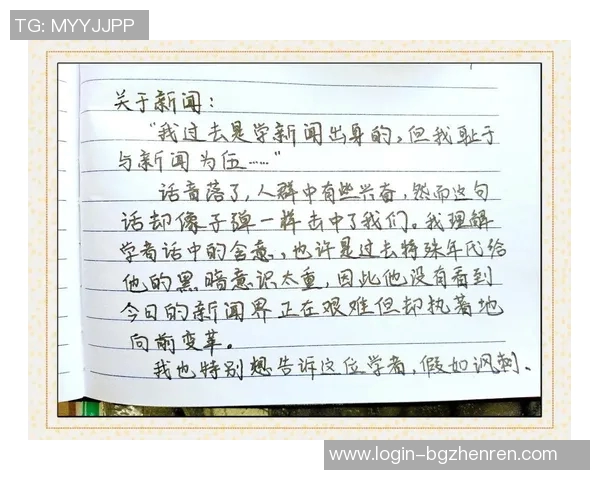 TG: MYYJJPP
关于新闻：
“我过去是学新闻出身的，但我耻于
与新闻为伍……”
话音落了，人群中有些兴奋，然而这句
话却像子弹一样击中了我们。我理解
学者话中的含意，也许是过去特殊年代给
他的黑暗意识太重，因此他没有看到
今日的新闻界正在艰难但却执着地
向前变革。
我也特别想告诉这位学者，假如讽刺、
www.login-bgzhenren.com